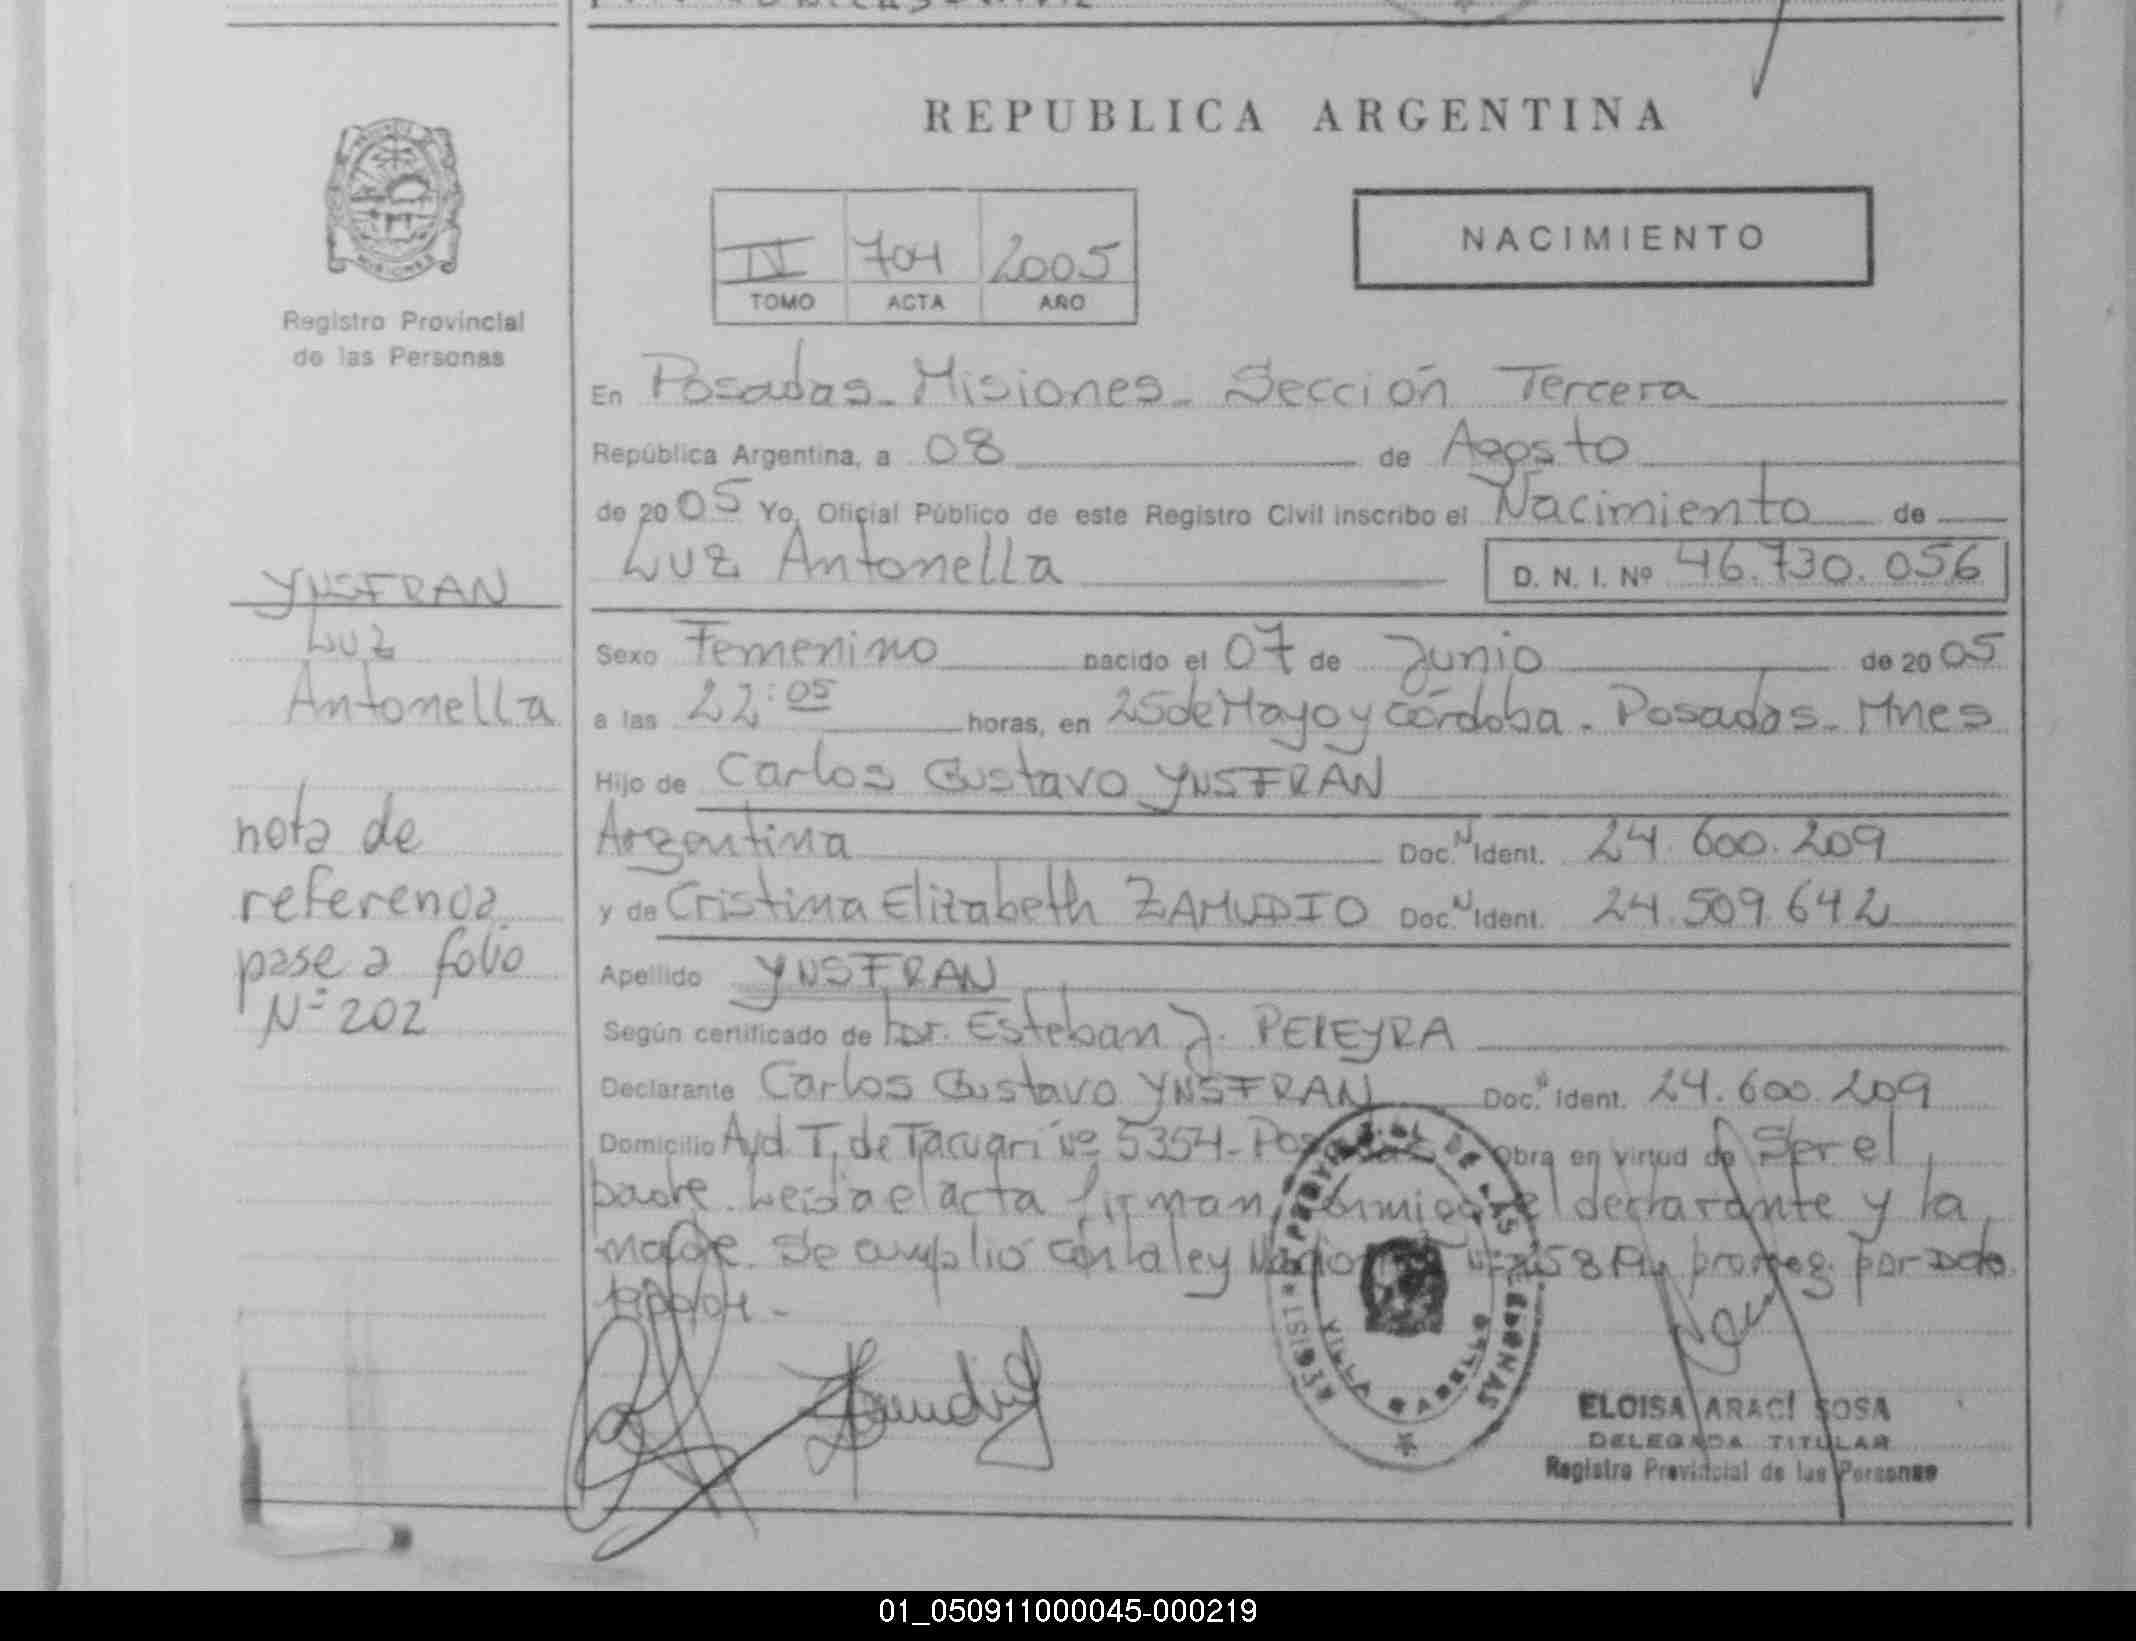 REPUBLICA ARGENTINA
NACIMIENTO
IV 704 2005
TOMO ACTA AÑO
MISIONES
Registro Provincial
de las Personas
En Posadas - Misiones - Sección Tercera
República Argentina, a 08 de Agosto
de 2005 Yo, Oficial Público de este Registro Civil inscribo el Nacimiento de
Luz Antonella D. N. I. Nº 46.730.056
YNSFRAN
Luz
Antonella
Sexo Femenino nacido el 07 de Junio de 2005
a las 22:05 horas, en 25 de Mayo y Córdoba - Posadas - Mnes
Hijo de Carlos Gustavo YNSFRAN
Argentina Doc. N Ident. 24.600.209
y de Cristina Elizabeth ZAMUDIO Doc. N Ident. 24.509.642
nota de
referencia
pase a folio
Nº 202
Apellido YNSFRAN
Según certificado de Dr. Esteban J. PEREYRA
Declarante Carlos Gustavo YNSFRAN Doc. Ident. 24.600.209
Domicilio Avd. T. de Tacuarí Nº 5354 - Posadas Obra en virtud de Ser el
padre. Leída el acta firman conmigo el declarante y la
madre. Se cumplió con la ley por Dcto
REGISTRO PROVINCIAL DE LAS PERSONAS
VILLA CABELLO
ELOISA ARACÍ SOSA
DELEGADA TITULAR
Registro Provincial de las Personas
01_050911000045-000219